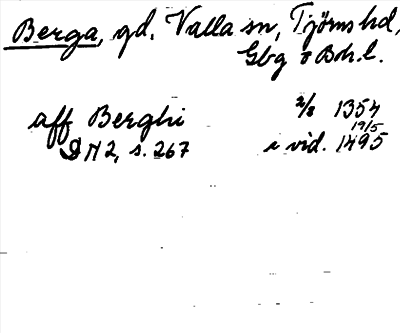 Berga, gd. Valla sn, Tjörns hd,
Gbg o Boh. l.
aff Berghi 2/8 1354
DN 2, s. 267 i vid. 19/5 1495